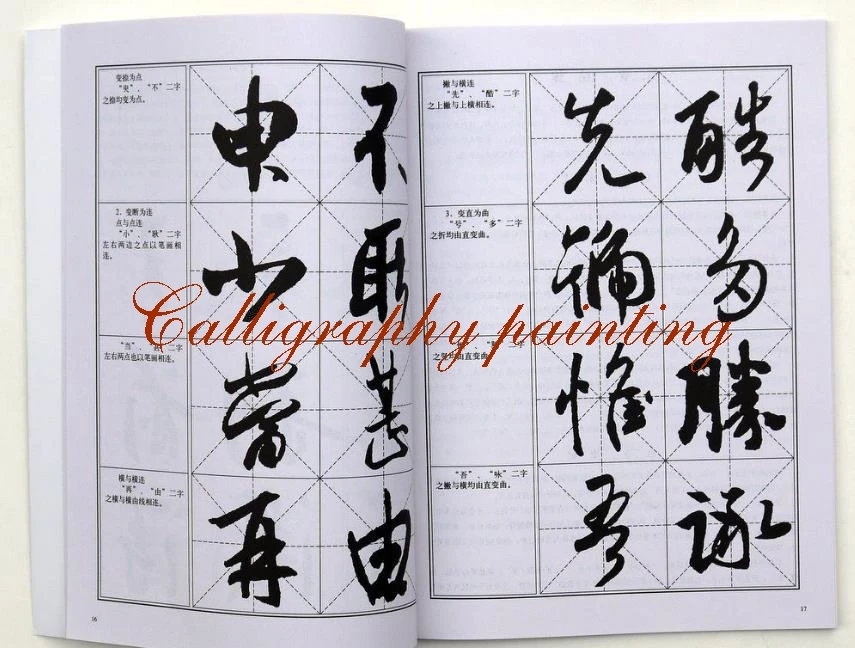 变捺为点
“”、“不”二字
之捺均变为点。
不
2. 变断为连
点与点连
“小”、“耿”二字
左右两边之点以笔画相
连。
小 耿
“当” 二字
左右两点也以笔画相连。
當 甚
横与横连
“再”、“由”二字
之横与横由线相连。
再 由
16
撇与横连
“先”、“酷”二字
之上撇与上横相连。
先 酷
3. 变直为曲
“号”、“多”二字
之折均由直变曲。
多
二字
之竖均由直变曲。
惟 勝
“吾”、“咏”二字
之撇与横均由直变曲。
吾 詠
17
Calligraphy painting